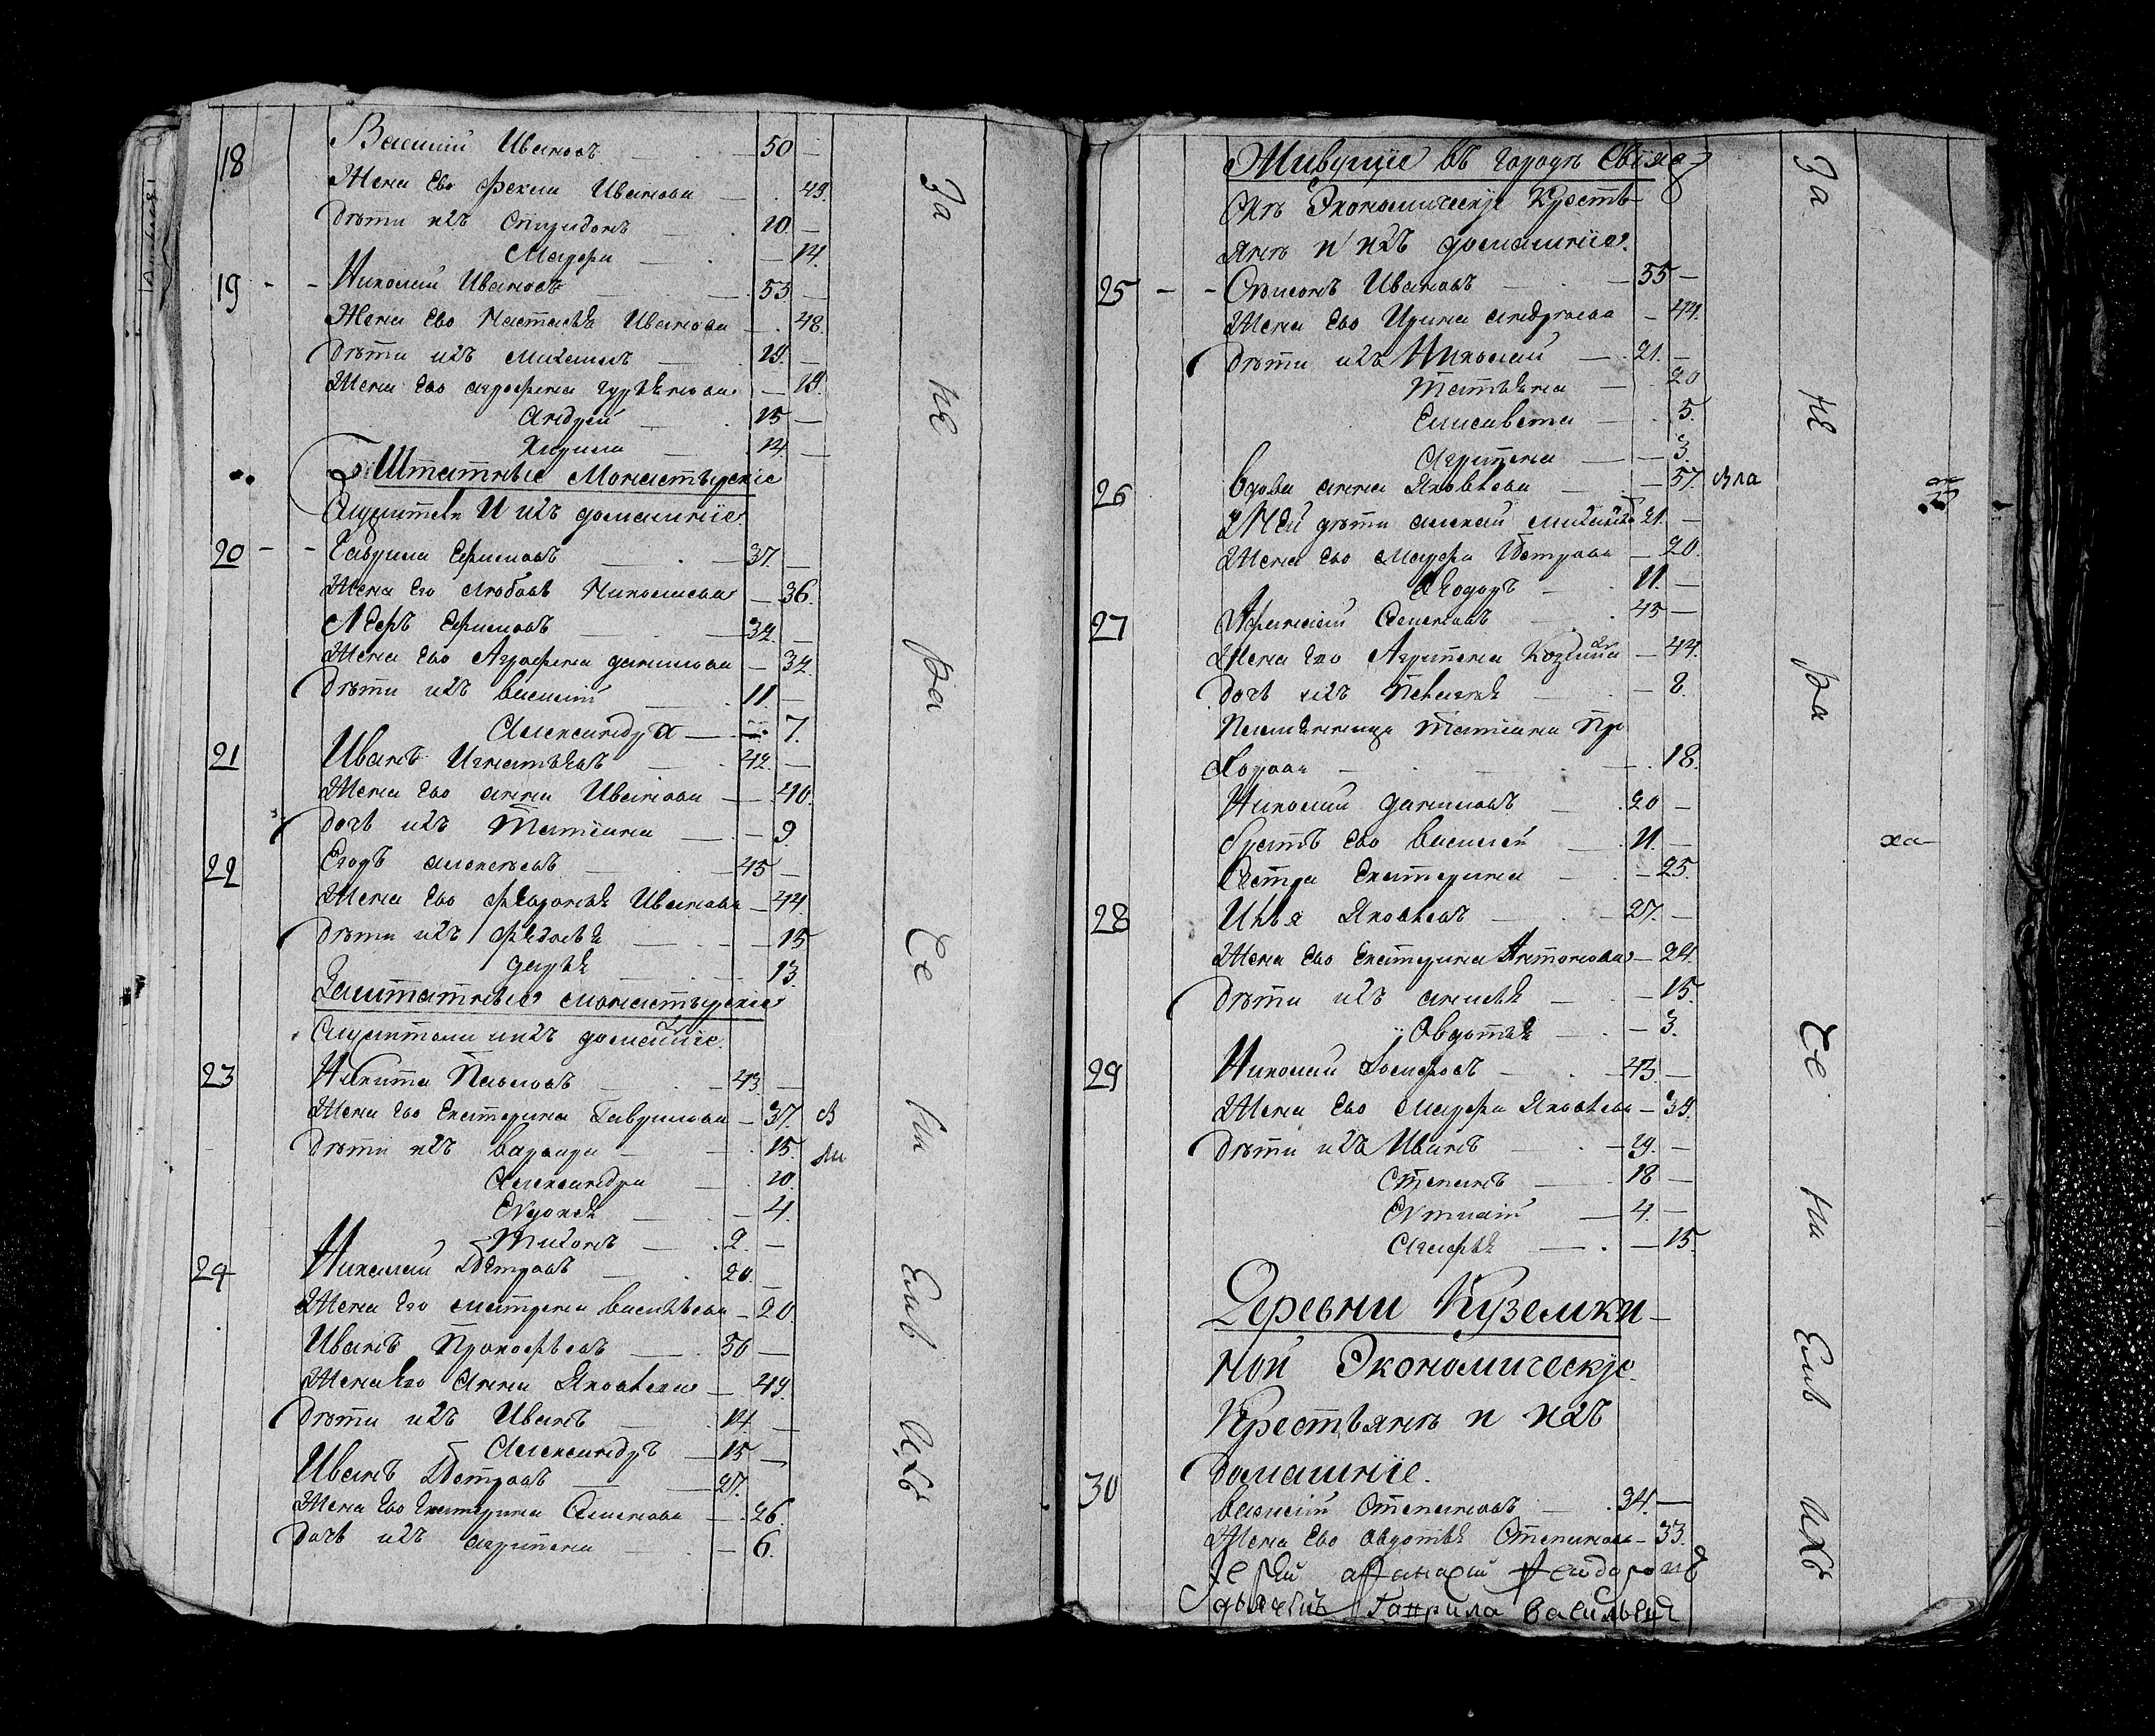 18 Василий Ивановъ 50
Жена Ево Фекла Иванова 49.
Дѣти ихъ Спиридонъ 20.
Марфа 14.
19 Николай Ивановъ 53
Жена Ево Настасья Иванова 48.
Дѣти ихъ Михаилъ 19.
Жена Ево Агрофена 19.
Андрей 15
14.
Штатные Монастырскіе
Служители И ихъ домашніе.
20 Гаврила Ефимовъ 37.
Жена Его Любовь Николаева 36.
Ефимовъ 32
Жена Ево Аграфена Данилова 32.
Дѣти ихъ Василій 11
Александра 7.
21 Иванъ Игнатьевъ 42.
Жена Ево Анна Иванова 40.
Дочь ихъ Татіана 9.
22 Егоръ Алексеевъ 45
Жена Ево Ѳедосья Иванова 44.
Дѣти ихъ Федосья 15
Дарья 13.
Заштатные монастырскіе
Служители и ихъ домашніе.
23 Никита Павловъ 43.
Жена Ево Екатерина Гаврилова 37.
Дѣти ихъ Варвара 15.
Александра 10.
Евдокея 4.
Тихонъ 2.
24 Николай Петровъ 20.
Жена Его Матрена Васильева 20
Иванъ Прокофьевъ 50
Жена Его Анна Яковлева 49.
Дѣти ихъ Иванъ 14.
Александръ 15
Иванъ Петровъ 27.
Жена Ево Екатерина Семенова 26.
Дочь ихъ Агрипена 6.
За
не
ра
че
ни
емъ
ихъ
Живущіе въ городѣ Свіяж-
скѣ Экономическіе Кресть-
янѣ и ихъ домашніе.
25 Симонъ Ивановъ 55
Жена Ево Ирина Андреева 44.
Дѣти ихъ Николай 21.
Татьяна 20
Елисавета 5.
Агрипена 3.
26 Вдова Анна Яковлева 57.
У Ней дѣти Алексей 21.
Жена Ево Марфа Петрова 20.
Ѳеодоръ 11.
27 Афанасій Семеновъ 45
Жена Ево Агрипена Козмина 44.
Дочь ихъ Пелагея 8.
Племянница Татіана Про
хорова 18.
Николай Даниловъ 20
Братъ Ево Василей 11.
Сестра Екатерина 25.
28 Илья Яковлевъ 27.
Жена Ево Екатерина Антонова 24.
Дѣти ихъ 15.
Авдотья 3.
29 Николай 43.
Жена Ево Марфа Яковлева 39.
Дѣти ихъ Иванъ
Степанъ 18
4.
Агафья 15.
Деревни Куземки-
ной Экономическіе
Крестьянѣ и ихъ
Домашніе.
30 Василій Степановъ 34.
Жена Ево Авдотья Степанова 33.
Іерей Афанасій Феидоровъ
дьячекъ Гаврила Васильевъ
За
не
ра
че
ни
емъ
ихъ
ха